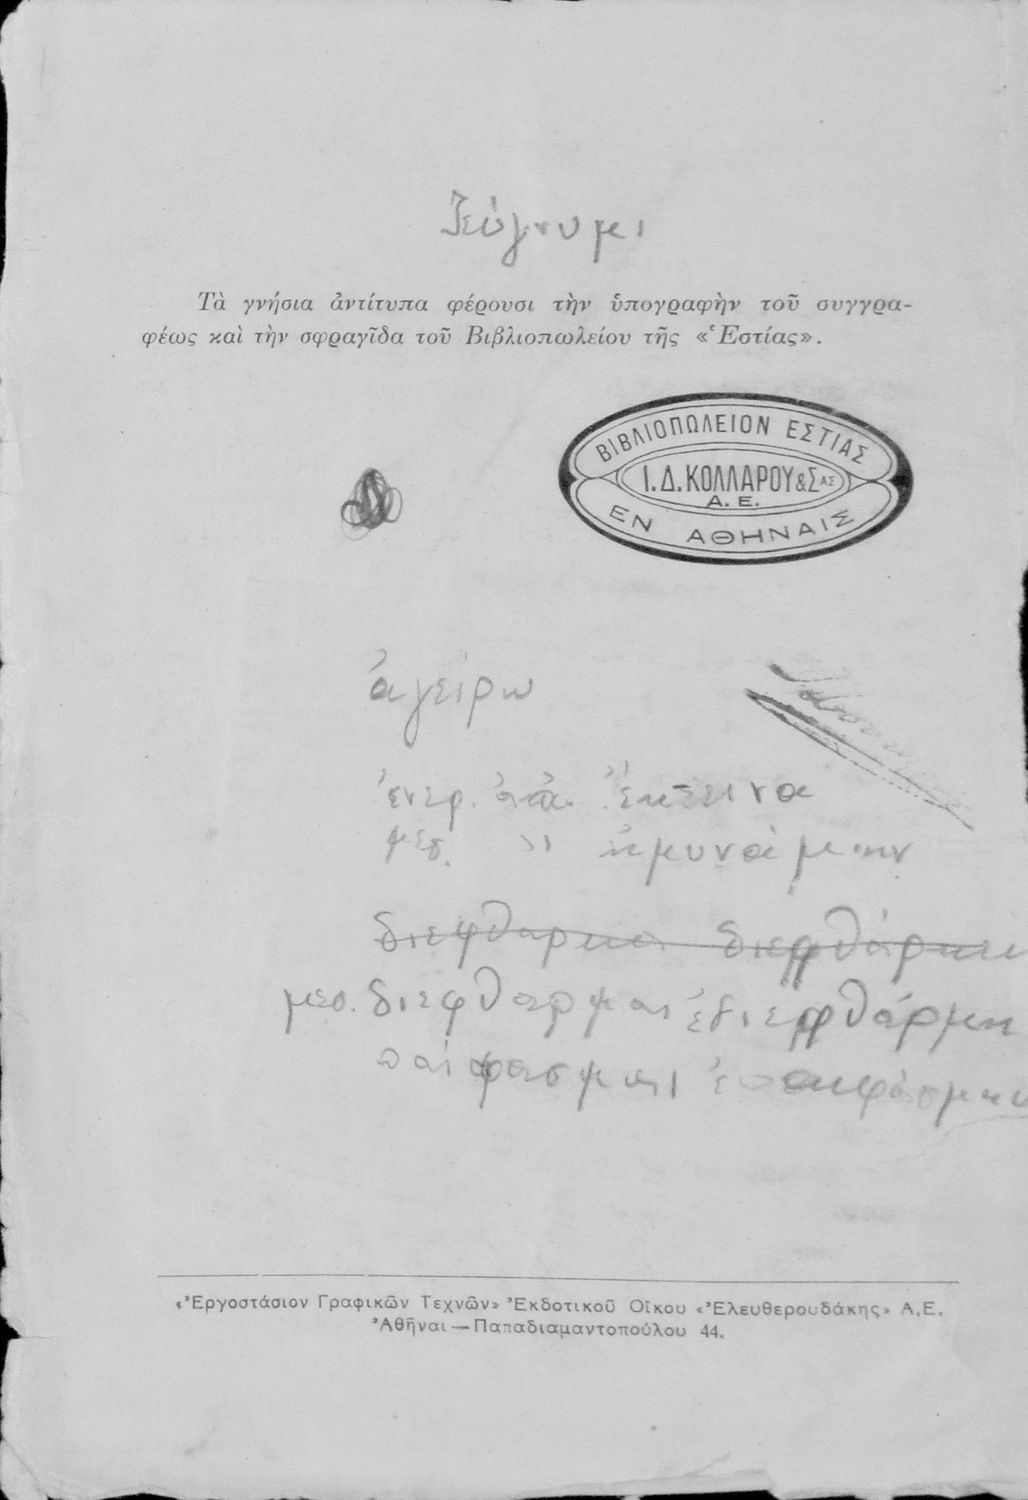 ζεύγνυμι
Τὰ γνήσια ἀντίτυπα φέρουσι τὴν ὑπογραφὴν τοῦ συγγρα-
φέως καὶ τὴν σφραγῖδα τοῦ Βιβλιοπωλείου τῆς «Ἑστίας».
ΒΙΒΛΙΟΠΩΛΕΙΟΝ ΕΣΤΙΑΣ
Ι.Δ.ΚΟΛΛΑΡΟΥ&ΣΑΣ
Α.Ε.
ΕΝ ΑΘΗΝΑΙΣ
ἀγείρω
ἐνερ. ἔκτεινα
μεσ. " ἠμυνάμην
διεφθαρκα διεφθάρκειν
μεσ. διεφθαρμαι ἐδιεφθάρμην
παίφασμαι
«Ἐργοστάσιον Γραφικῶν Τεχνῶν» Ἐκδοτικοῦ Οἴκου «Ἐλευθερουδάκης» Α.Ε.
Ἀθῆναι — Παπαδιαμαντοπούλου 44.